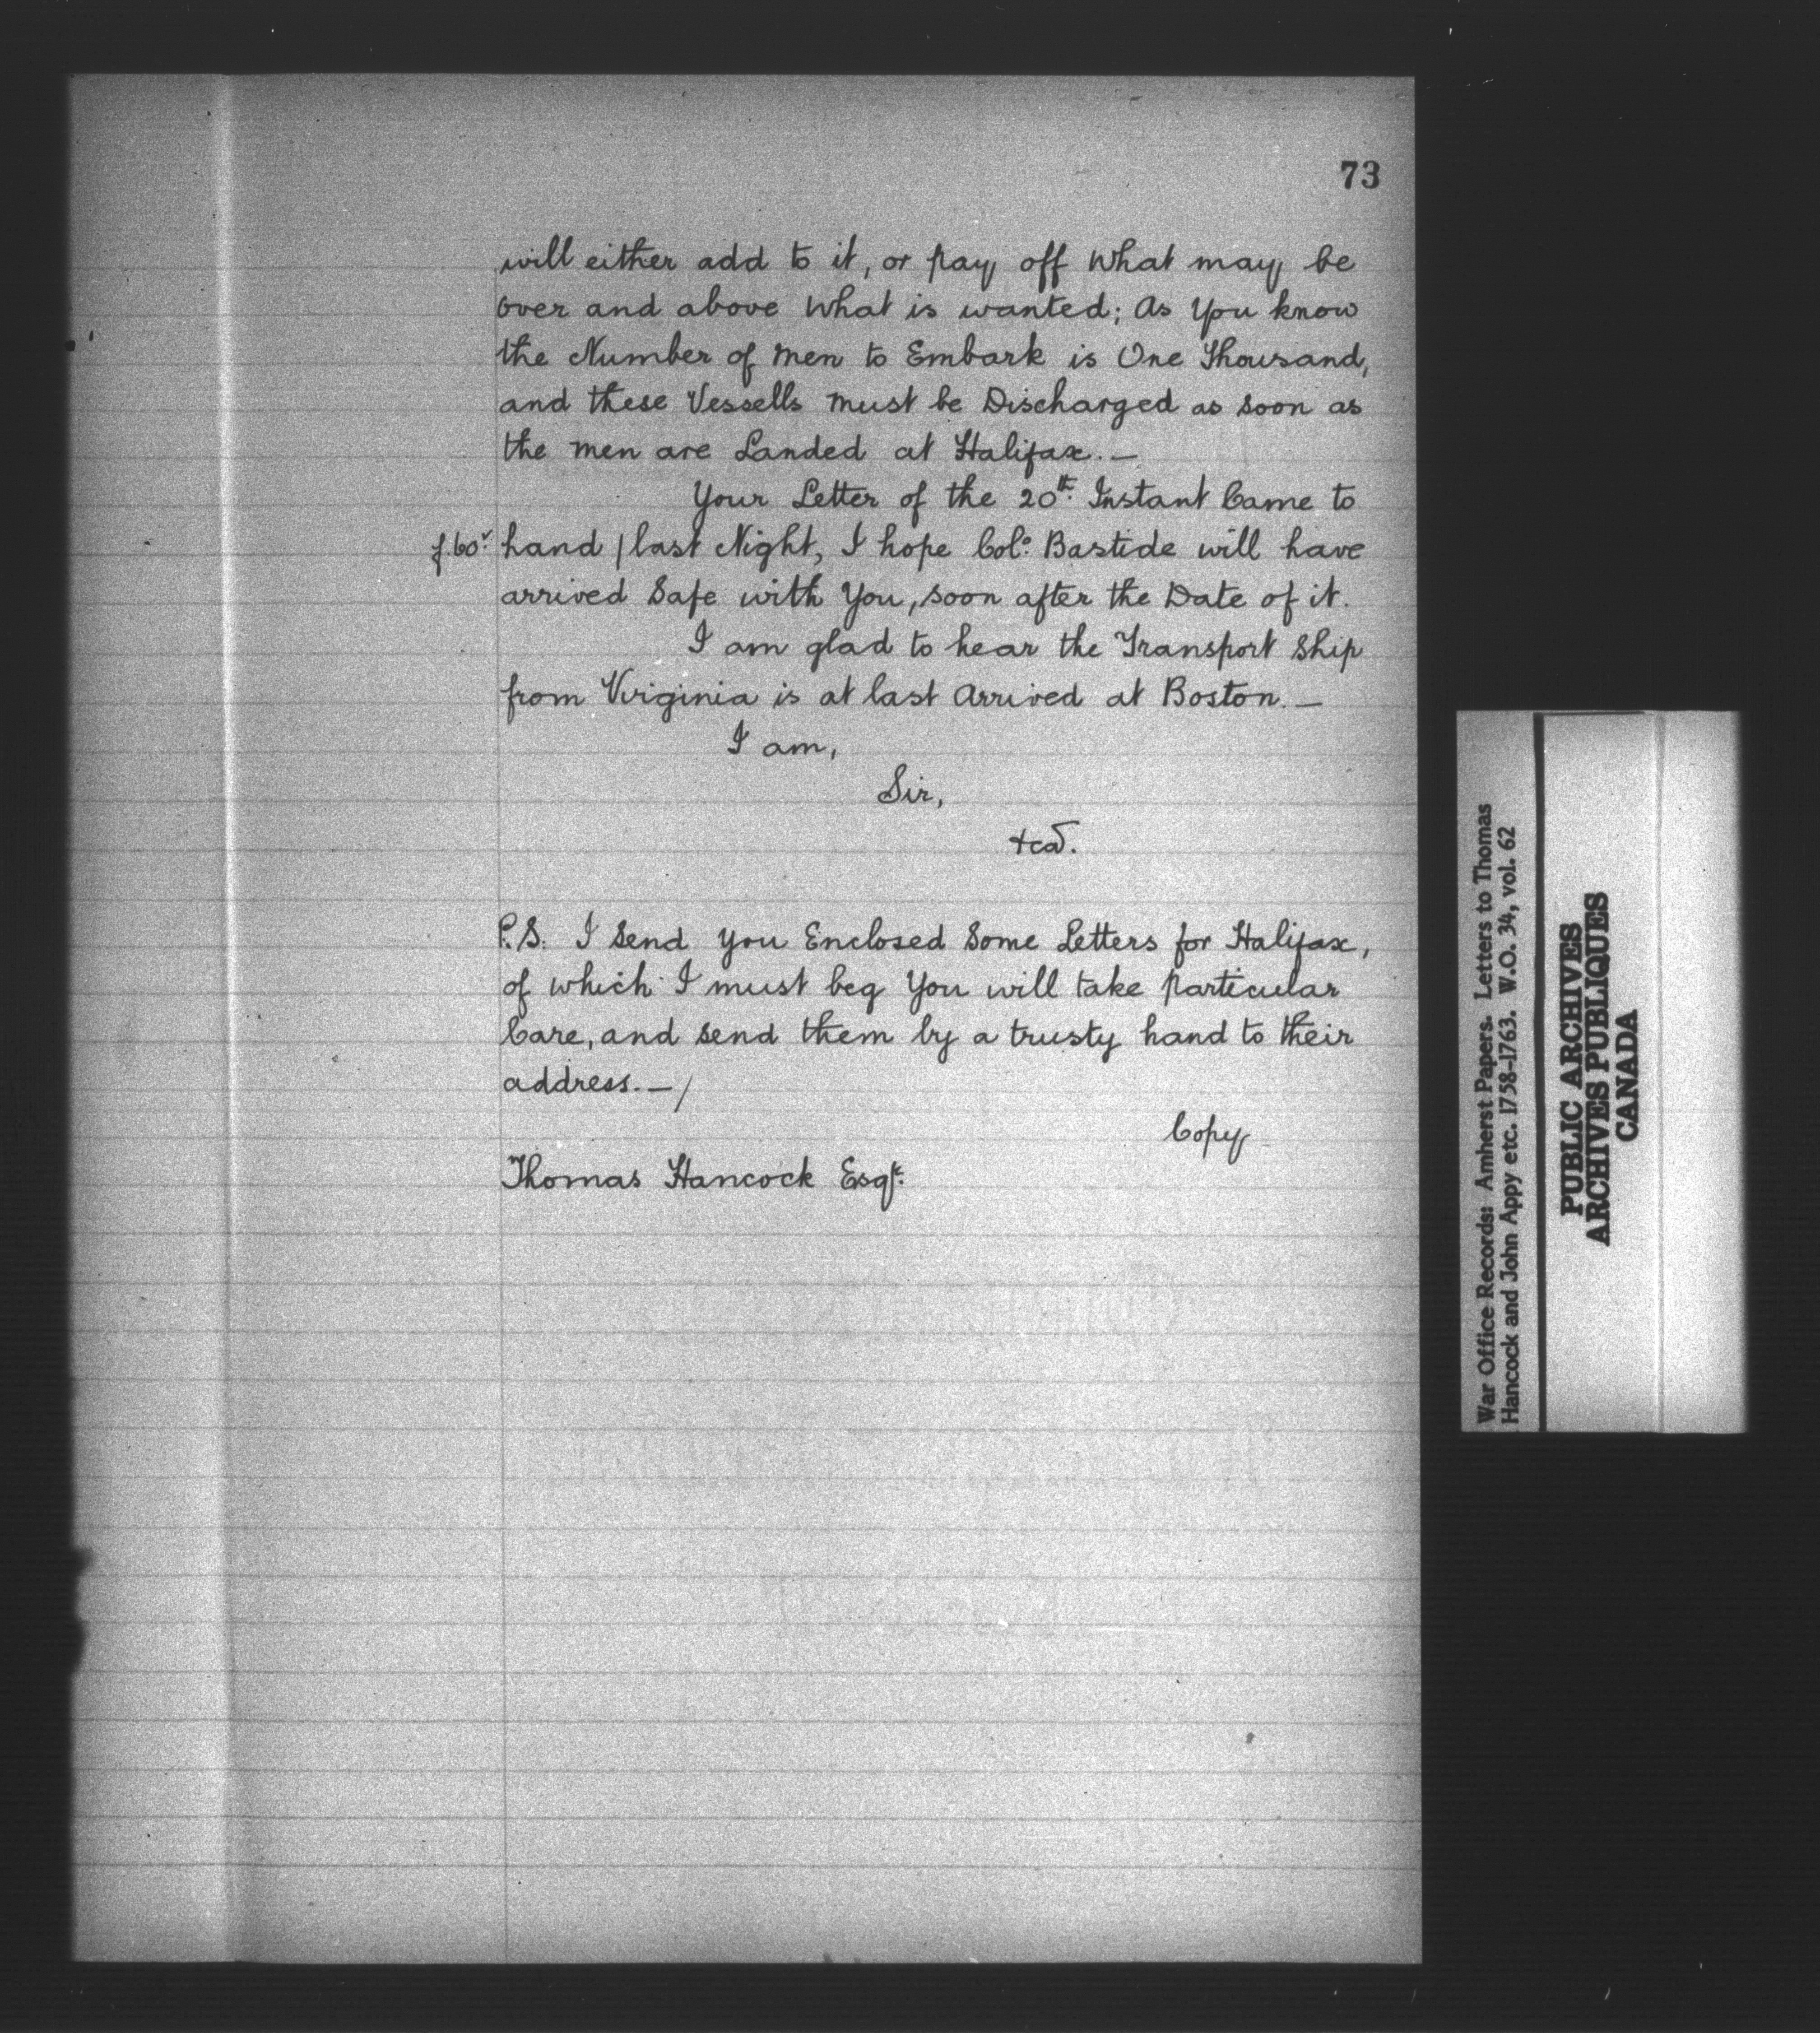 73
will either add to it, or pay off What may be
over and above What is wanted; As You know
the Number of Men to Embark is One Thousand,
and these Vessells Must be Discharged as soon as
the Men are Landed at Halifax.—
Your Letter of the 20th. Instant Came to
f.60v. hand / last Night, I hope Colo. Bastide will have
arrived Safe with You, soon after the Date of it.
I am glad to hear the Transport Ship
from Virginia is at last Arrived at Boston.—
I am,
Sir,
&ca.
P.S. I Send You Enclosed Some Letters for Halifax,
of which I must beg You will take Particular
Care, and send them by a trusty hand to their
address.—/
Copy
Thomas Hancock Esqr.
War Office Records: Amherst Papers. Letters to Thomas
Hancock and John Appy etc. 1758-1763. W.O. 34, vol. 62
PUBLIC ARCHIVES
ARCHIVES PUBLIQUES
CANADA